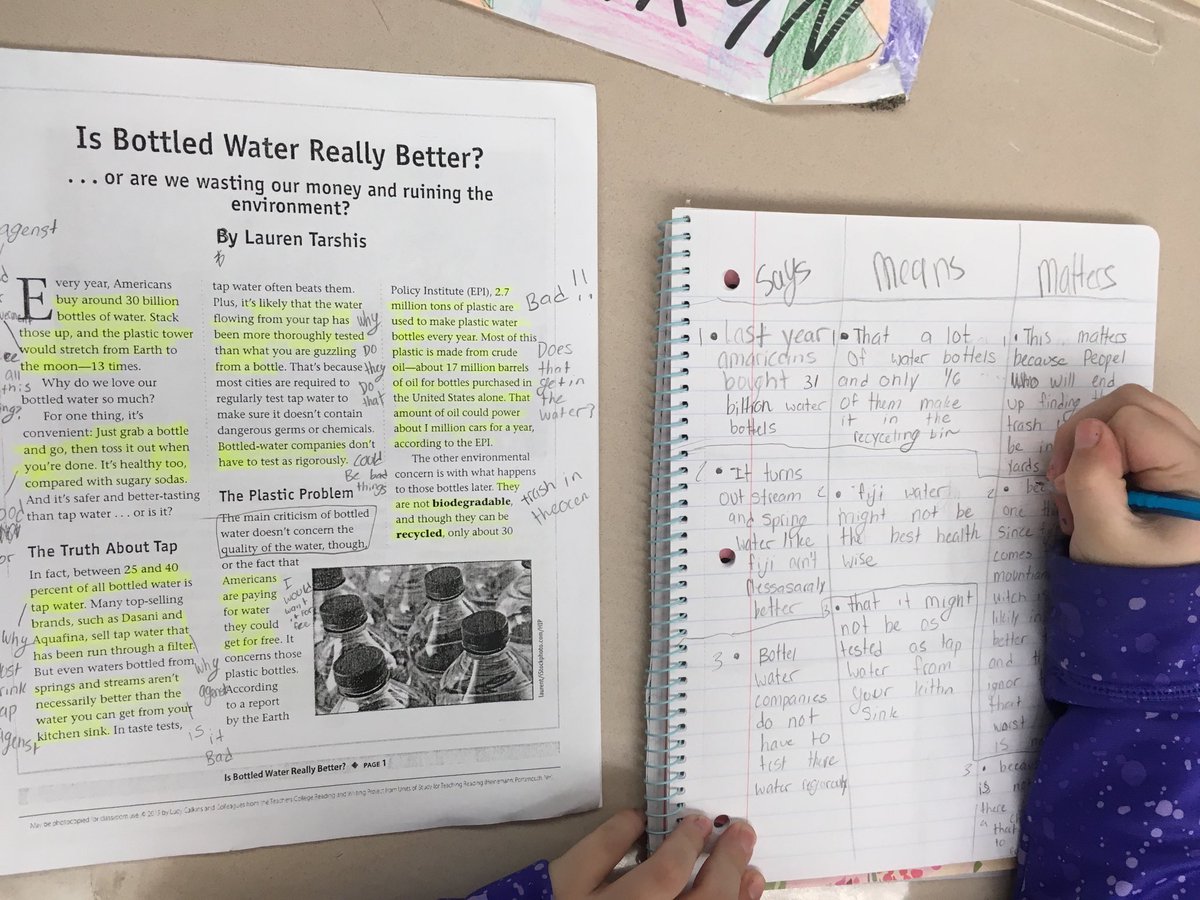 Is Bottled Water Really Better?
. . . or are we wasting our money and ruining the
environment?
By Lauren Tarshis
agenst
Every year, Americans
buy around 30 billion
bottles of water. Stack
those up, and the plastic tower
would stretch from Earth to
the moon—13 times.
Why do we love our
bottled water so much?
For one thing, it's
convenient: Just grab a bottle
and go, then toss it out when
you're done. It's healthy too,
compared with sugary sodas.
And it's safer and better-tasting
than tap water . . . or is it?
all
this
The Truth About Tap
In fact, between 25 and 40
percent of all bottled water is
tap water. Many top-selling
brands, such as Dasani and
Aquafina, sell tap water that
has been run through a filter.
But even waters bottled from
springs and streams aren't
necessarily better than the
water you can get from your
kitchen sink. In taste tests,
why
agenst
tap water often beats them.
Plus, it's likely that the water
flowing from your tap has
been more thoroughly tested
than what you are guzzling
from a bottle. That's because
most cities are required to
regularly test tap water to
make sure it doesn't contain
dangerous germs or chemicals.
Bottled-water companies don't
have to test as rigorously.
why
Do
they
Do
that
could
Be bad
things
The Plastic Problem
The main criticism of bottled
water doesn't concern the
quality of the water, though,
or the fact that
Americans
are paying
for water
they could
get for free. It
concerns those
plastic bottles.
According
to a report
by the Earth
I
would
why
is it
Bad
Policy Institute (EPI), 2.7
million tons of plastic are
used to make plastic water
bottles every year. Most of this
plastic is made from crude
oil—about 17 million barrels
of oil for bottles purchased in
the United States alone. That
amount of oil could power
about 1 million cars for a year,
according to the EPI.
The other environmental
concern is with what happens
to those bottles later. They
are not biodegradable,
and though they can be
recycled, only about 30
Bad!!
Does
that
get in
the
water?
trash in
theocen
Laurent/iStockphoto.com/HIP
Is Bottled Water Really Better? ◆ PAGE 1
May be photocopied for classroom use. © 2015 by Lucy Calkins and Colleagues from the Teachers College Reading and Writing Project from Units of Study for Teaching Reading (Heinemann: Portsmouth, NH).
Says
1 • Last year
amaricans
bought 31
billion water
bottels
2 • It turns
out stream
and spring
water like
fiji ain't
nessasaraly
better
3 • Bottel
water
companies
do not
have to
test there
water regorously
Means
1 • That a lot
of water bottels
and only 1/6
of them make
it in the
recyceling bin
2 • fiji water
might not be
the best health
wise
3 • that it might
not be as
tested as tap
water from
your kithn
sink
Matters
1 • This matters
because Peopel
who will end
up finding
trash
be in
yards
2 •
one
since
comes
mountian
witch is
likly in
better
and
ignor
that
worst
is
3 • becau
is
there
a
that
to